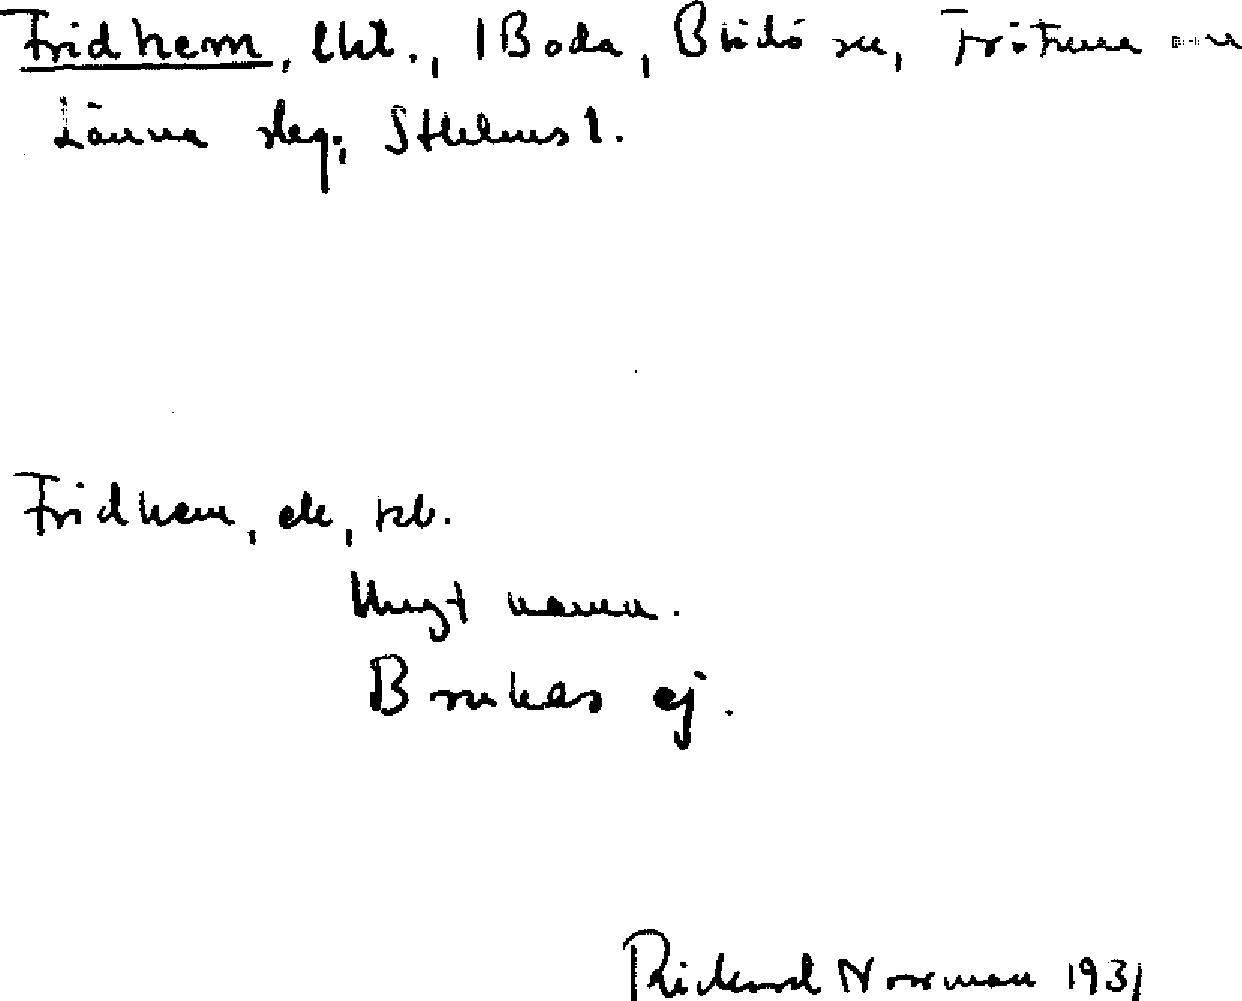 Fridhem, lht., 1 Boda, Blidö sn, Frötuna och
Länna skg., Sthlms l.
Fridhem, ek,
Ungt namn.
Brukas ej.
Rickard Norrman 1931